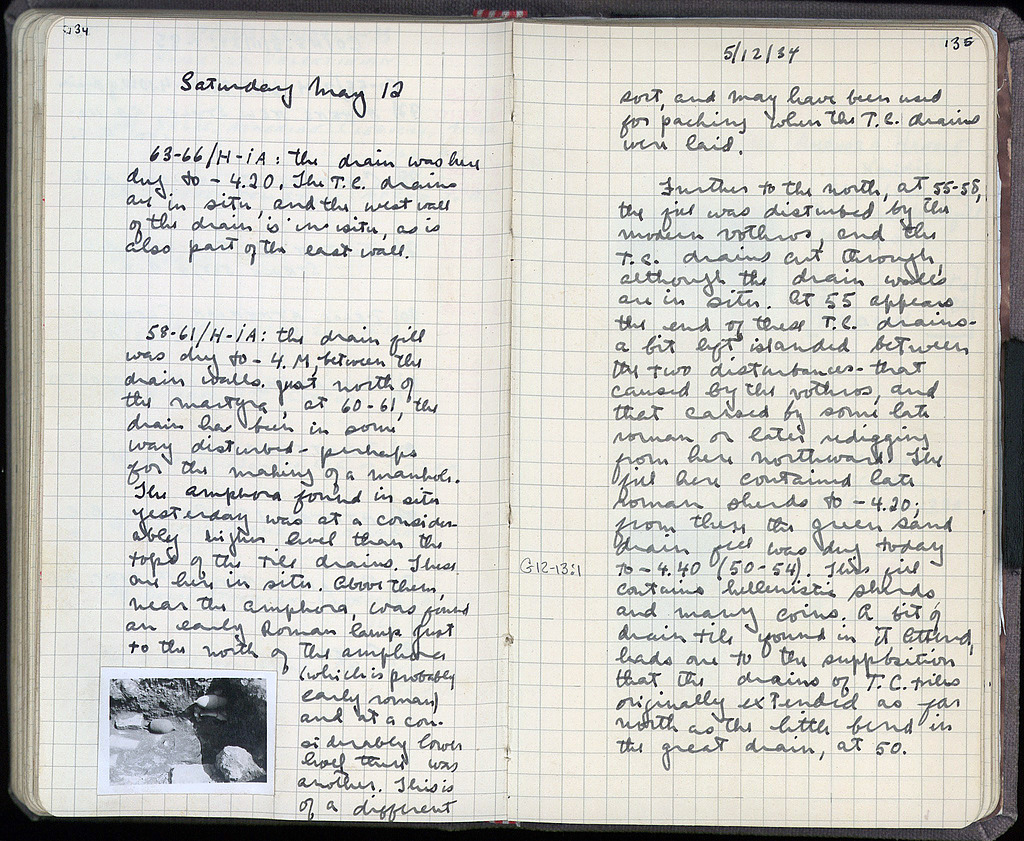 134
Saturday May 12
63-66/H-ΙΑ: the drain was here
dug to -4.20. The T.C. drains
are in situ, and the west wall
of the drain is in situ, as is
also part of the east wall.
58-61/H-ΙΑ: the drain fill
was dug to -4.M, between the
drain walls. Just north of
the martyra, at 60-61, the
drain has been in some
way disturbed - perhaps
for the making of a manhole.
The amphora found in situ
yesterday was at a consider-
ably higher level than the
tops of the tile drains. These
are here in situ. Above them,
near the amphora, was found
an early Roman lamp. Just
to the north of the amphora
(which is probably
early roman)
and at a con-
siderably lower
level there was
another. This is
of a different
135
5/12/34
sort, and may have been used
for packing when the T.C. drains
were laid.
Further to the north, at 55-58,
the fill was disturbed by the
modern vothros, and the
T.C. drains cut through,
although the drain walls
are in situ. At 55 appears
the end of these T.C. drains -
a bit left islanded between
the two disturbances - that
caused by the vothros, and
that caused by some late
roman or later redigging
from here northward. The
fill here contained late
Roman sherds to -4.20;
from there the green sand
drain fill was dug today
G 12-13:1
to -4.40 (50-54). This fill
contains hellenistic sherds
and many coins. A bit of
drain tile found in it
leads one to the supposition
that the drains of T.C. tiles
originally extended as far
north as the little bend in
the great drain, at 50.